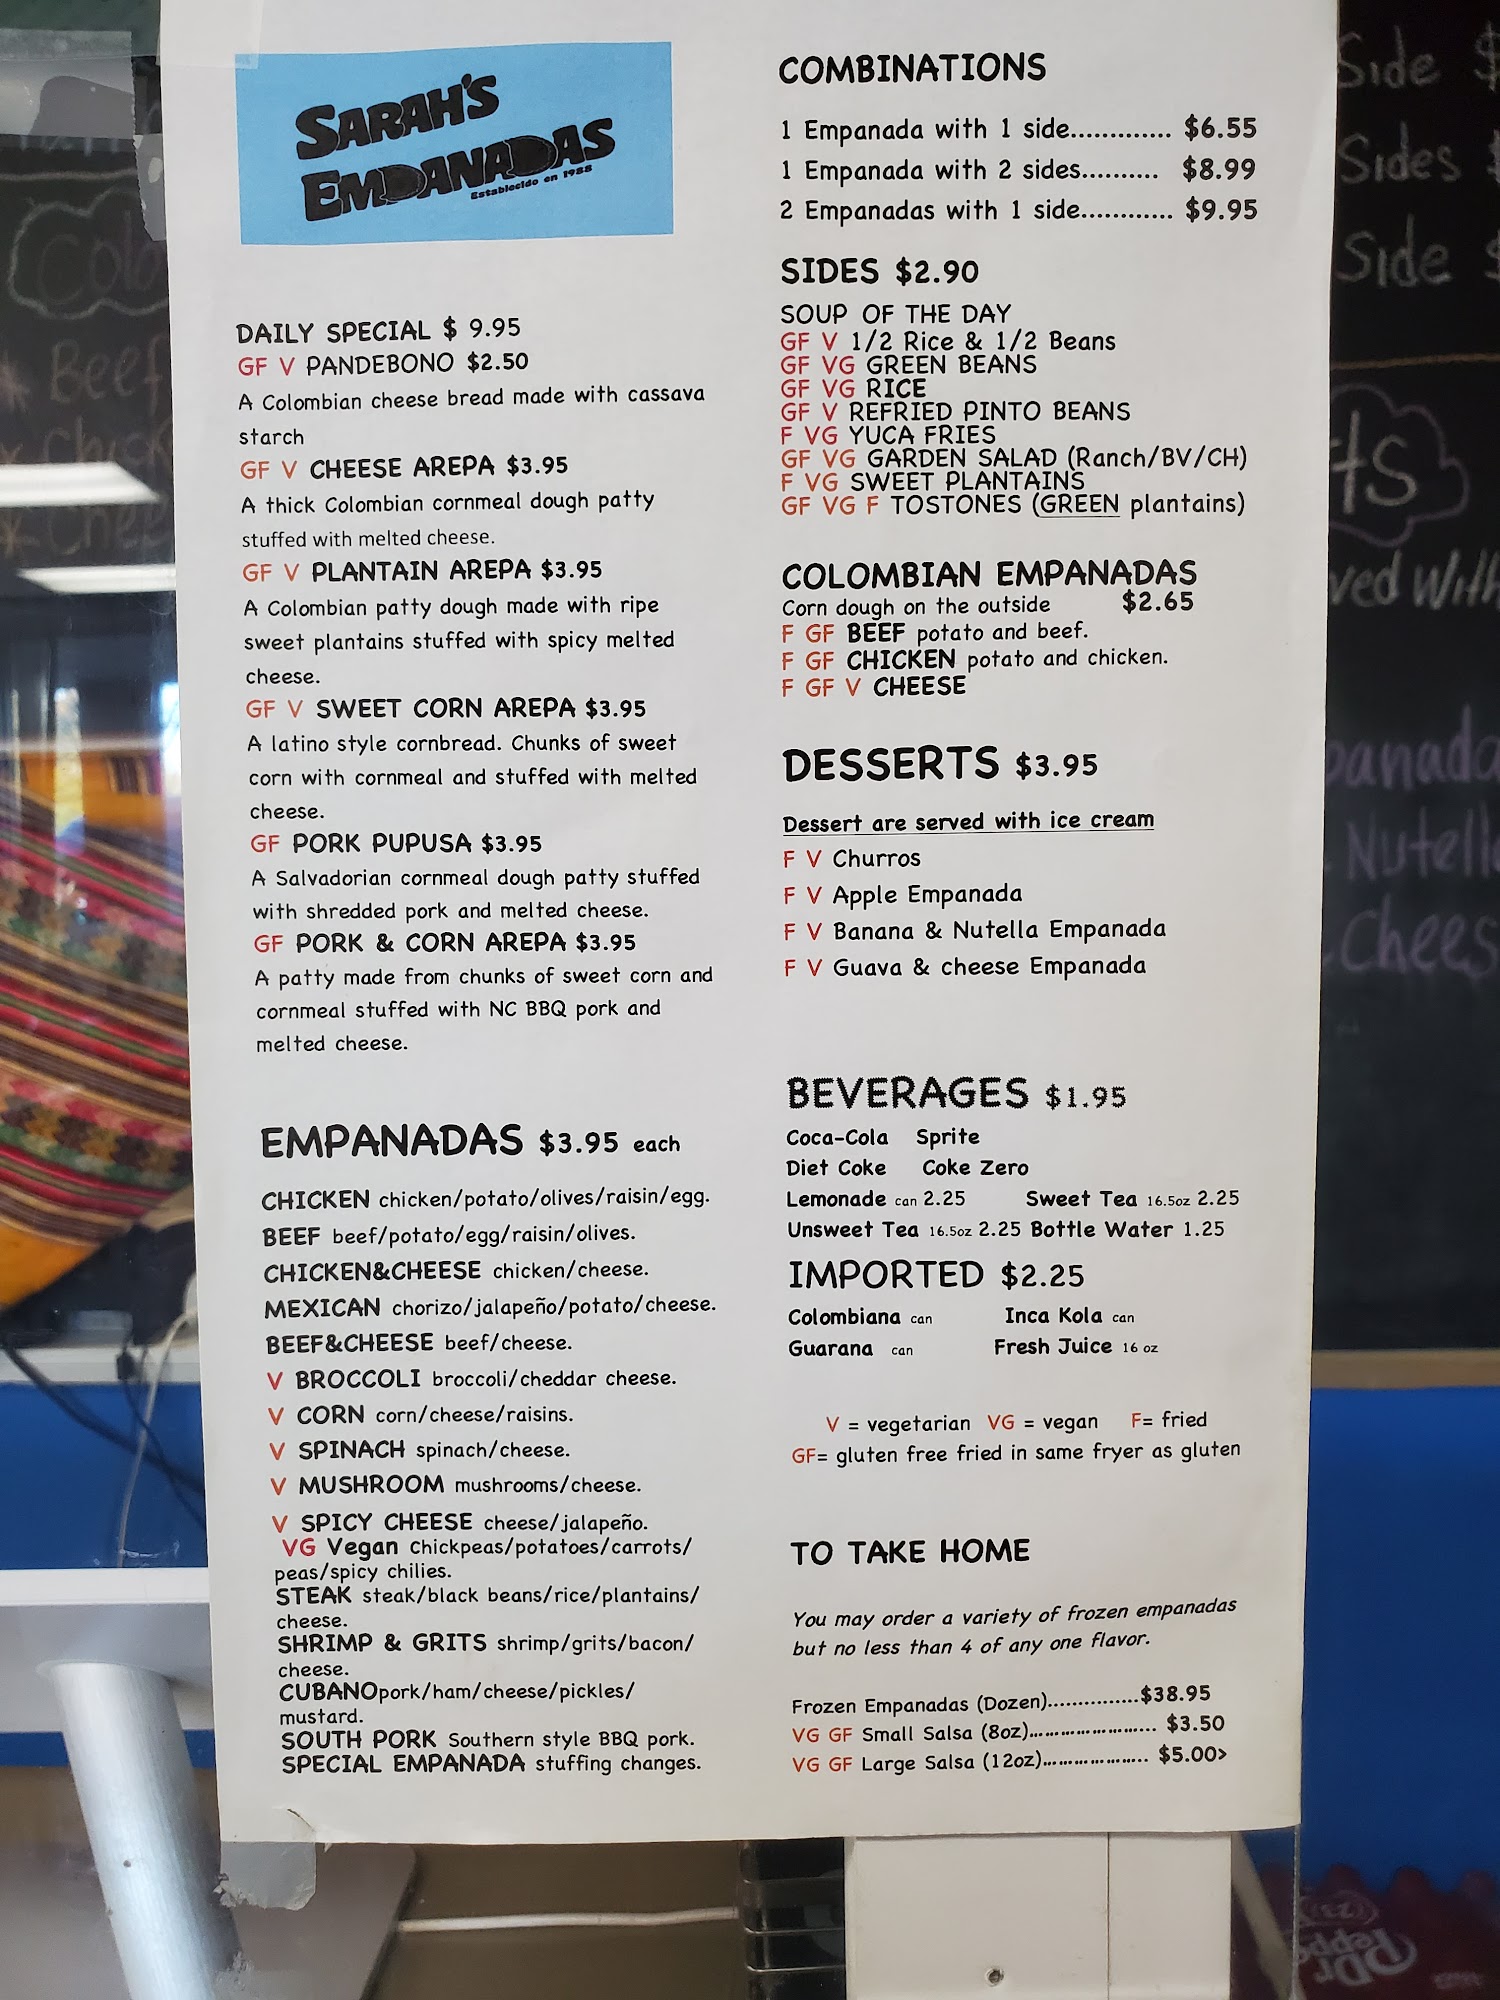 SARAH'S
EMPANADAS
Establecido en 1988
DAILY SPECIAL $ 9.95
GF V PANDEBONO $2.50
A Colombian cheese bread made with cassava
starch
GF V CHEESE AREPA $3.95
A thick Colombian cornmeal dough patty
stuffed with melted cheese.
GF V PLANTAIN AREPA $3.95
A Colombian patty dough made with ripe
sweet plantains stuffed with spicy melted
cheese.
GF V SWEET CORN AREPA $3.95
A latino style cornbread. Chunks of sweet
corn with cornmeal and stuffed with melted
cheese.
GF PORK PUPUSA $3.95
A Salvadorian cornmeal dough patty stuffed
with shredded pork and melted cheese.
GF PORK & CORN AREPA $3.95
A patty made from chunks of sweet corn and
cornmeal stuffed with NC BBQ pork and
melted cheese.
EMPANADAS $3.95 each
CHICKEN chicken/potato/olives/raisin/egg.
BEEF beef/potato/egg/raisin/olives.
CHICKEN&CHEESE chicken/cheese.
MEXICAN chorizo/jalapeño/potato/cheese.
BEEF&CHEESE beef/cheese.
V BROCCOLI broccoli/cheddar cheese.
V CORN corn/cheese/raisins.
V SPINACH spinach/cheese.
V MUSHROOM mushrooms/cheese.
V SPICY CHEESE cheese/jalapeño.
VG Vegan Chickpeas/potatoes/carrots/
peas/spicy chilies.
STEAK steak/black beans/rice/plantains/
cheese.
SHRIMP & GRITS shrimp/grits/bacon/
cheese.
CUBANOpork/ham/cheese/pickles/
mustard.
SOUTH PORK Southern style BBQ pork.
SPECIAL EMPANADA stuffing changes.
COMBINATIONS
1 Empanada with 1 side............. $6.55
1 Empanada with 2 sides.......... $8.99
2 Empanadas with 1 side............ $9.95
SIDES $2.90
SOUP OF THE DAY
GF V 1/2 Rice & 1/2 Beans
GF VG GREEN BEANS
GF VG RICE
GF V REFRIED PINTO BEANS
F VG YUCA FRIES
GF VG GARDEN SALAD (Ranch/BV/CH)
F VG SWEET PLANTAINS
GF VG F TOSTONES (GREEN plantains)
COLOMBIAN EMPANADAS
Corn dough on the outside $2.65
F GF BEEF potato and beef.
F GF CHICKEN potato and chicken.
F GF V CHEESE
DESSERTS $3.95
Dessert are served with ice cream
F V Churros
F V Apple Empanada
F V Banana & Nutella Empanada
F V Guava & cheese Empanada
BEVERAGES $1.95
Coca-Cola Sprite
Diet Coke Coke Zero
Lemonade can 2.25 Sweet Tea 16.5oz 2.25
Unsweet Tea 16.5oz 2.25 Bottle Water 1.25
IMPORTED $2.25
Colombiana can Inca Kola can
Guarana can Fresh Juice 16 oz
V = vegetarian VG = vegan F= fried
GF= gluten free fried in same fryer as gluten
TO TAKE HOME
You may order a variety of frozen empanadas
but no less than 4 of any one flavor.
Frozen Empanadas (Dozen)...............$38.95
VG GF Small Salsa (8oz)........................ $3.50
VG GF Large Salsa (12oz).................... $5.00>
Side $
Sides $
Side $
Beef
Nutella
Dr Pepper